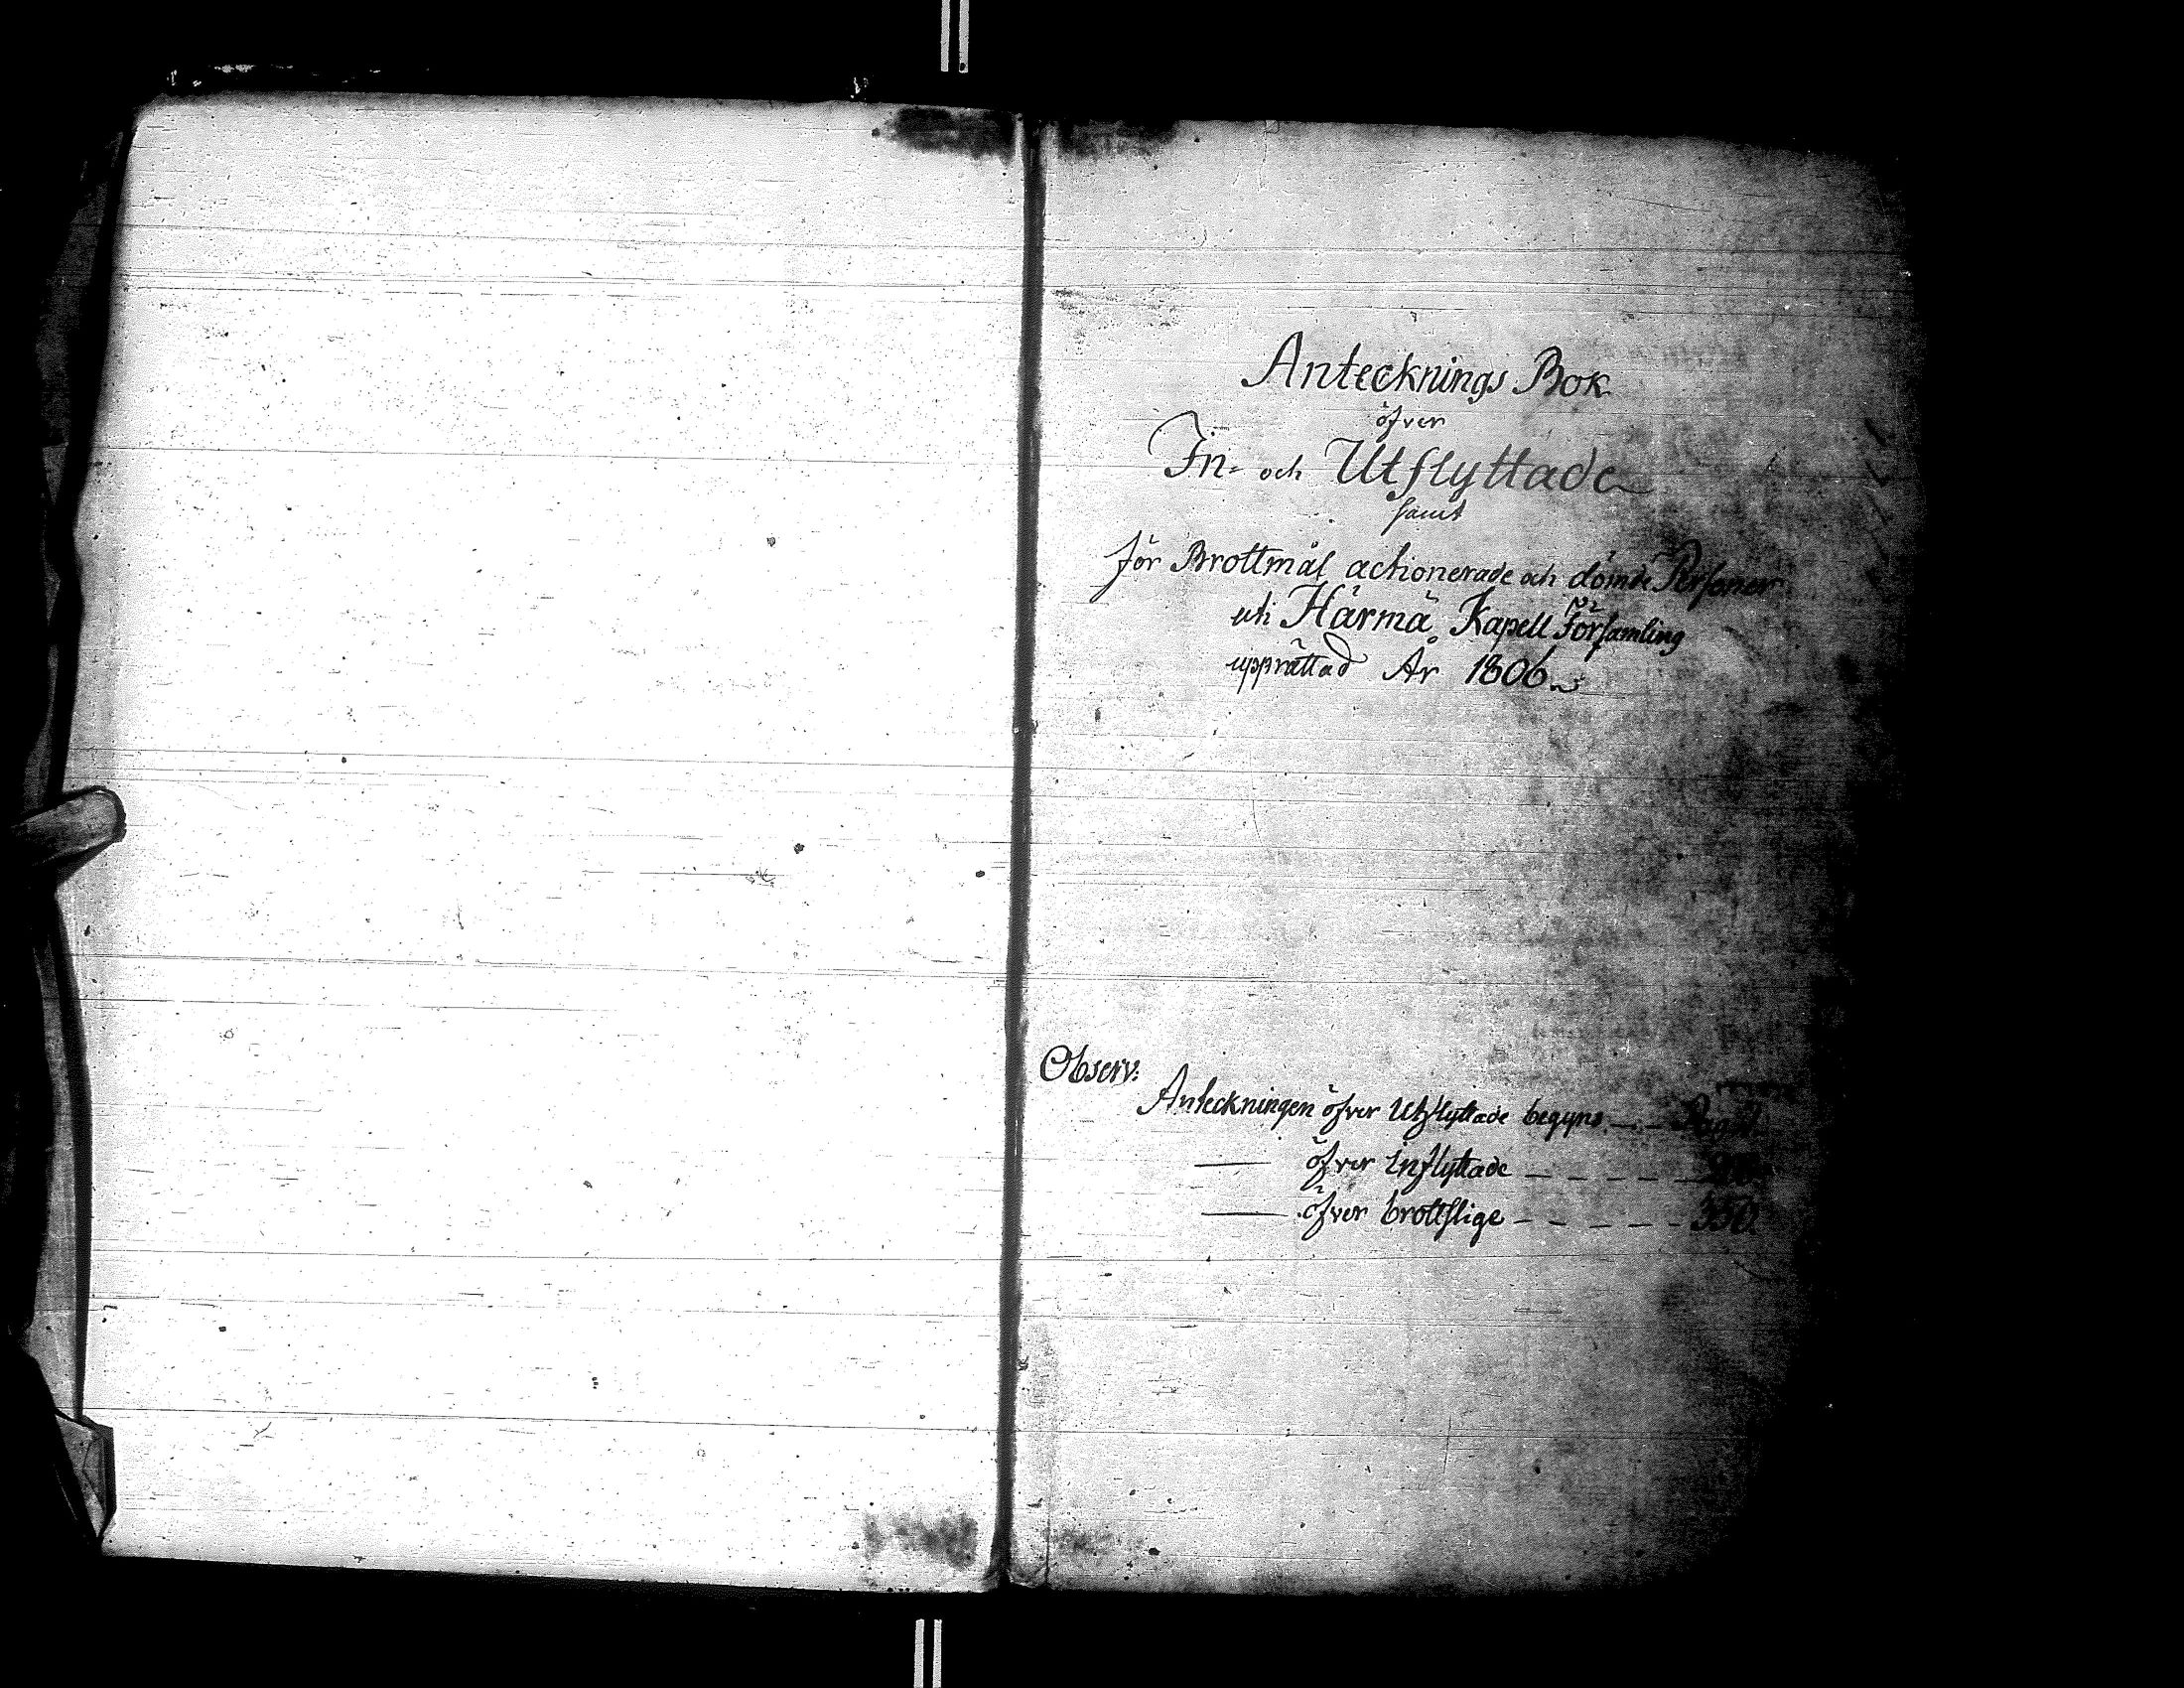 Antecknings Bok
öfver
In- och Utflyttade
samt
för Brottmål actionerade och dömde Personer
uti Härmä Kapell Församling
upprättad År 1806
Observ:
Anteckningen öfver Utflyttade begyns — — Pag.
—— öfver inflyttade — — — — —
—— öfver brottslige — — — — — 350